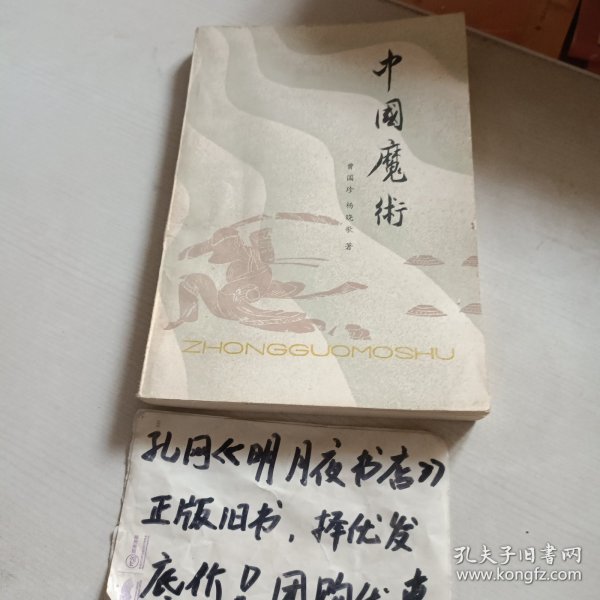 中國魔術
曾国珍 杨晓歌 著
ZHONGGUOMOSHU
孔网《明月夜书店》
正版旧书，择优发
底价！团购优惠
孔夫子旧书网
www.kongfz.com